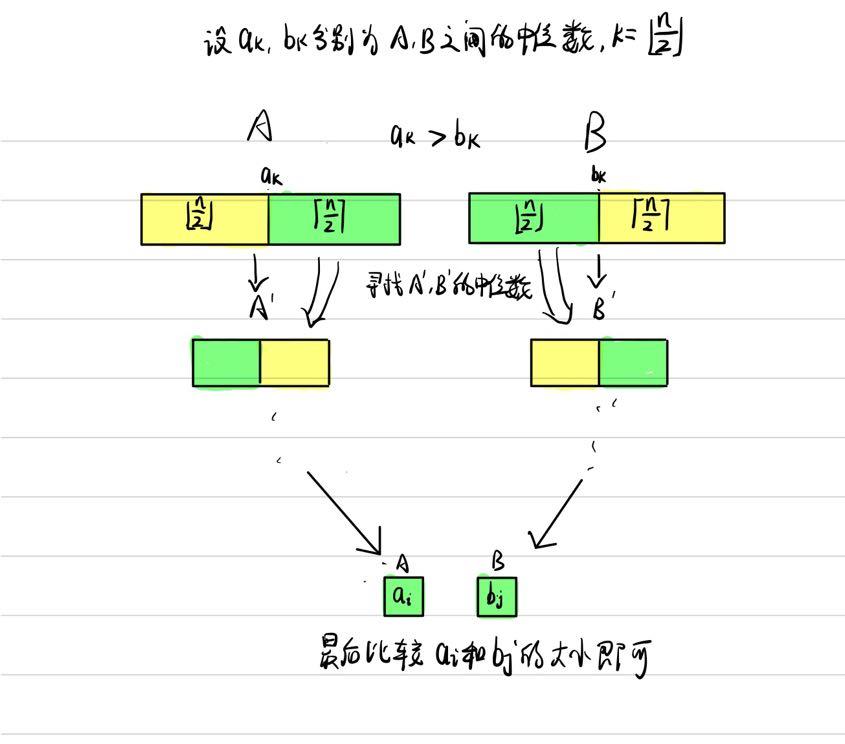 设 aₖ, bₖ分别为 A,B之间的中位数, k=⌊n/2⌋
A aₖ > bₖ B
aₖ bₖ
⌊n/2⌋ ⌈n/2⌉ ⌊n/2⌋ ⌈n/2⌉
寻找A',B'的中位数
A' B'
A B
aᵢ bⱼ
最后比较 aᵢ和bⱼ的大小即可